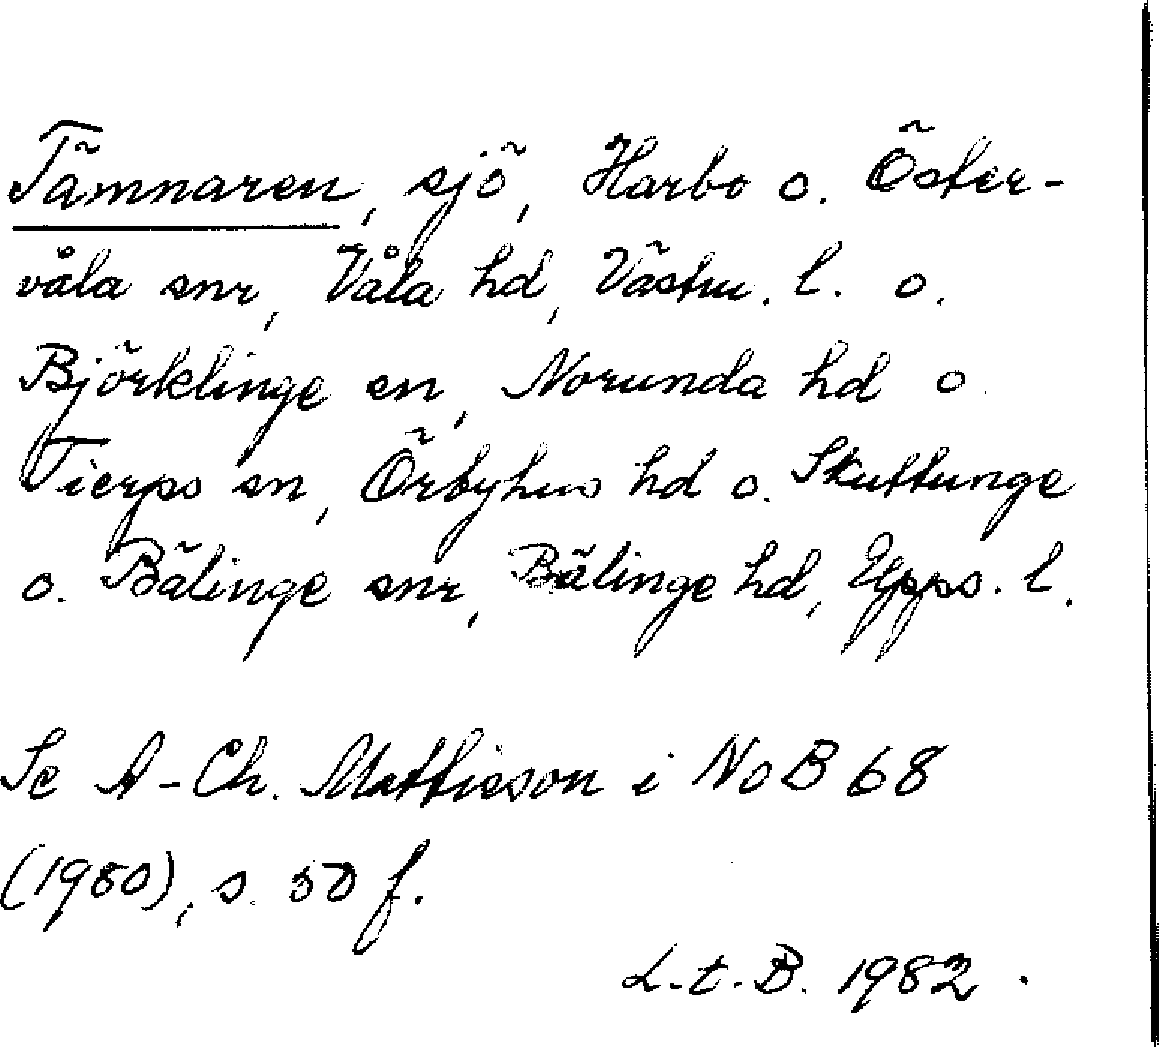 Tämnaren, sjö, Harbo o. Öster-
våla snr, Våla hd, Västm. l. o.
Björklinge sn, Norunda hd o.
Tierps sn, Örbyhus hd o. Skuttunge
o. Bälinge snr, Bälinge hd, Upps. l.
Se A-Ch. Mattisson i NoB 68
(1980), s. 50 f.
L.t.B. 1982.